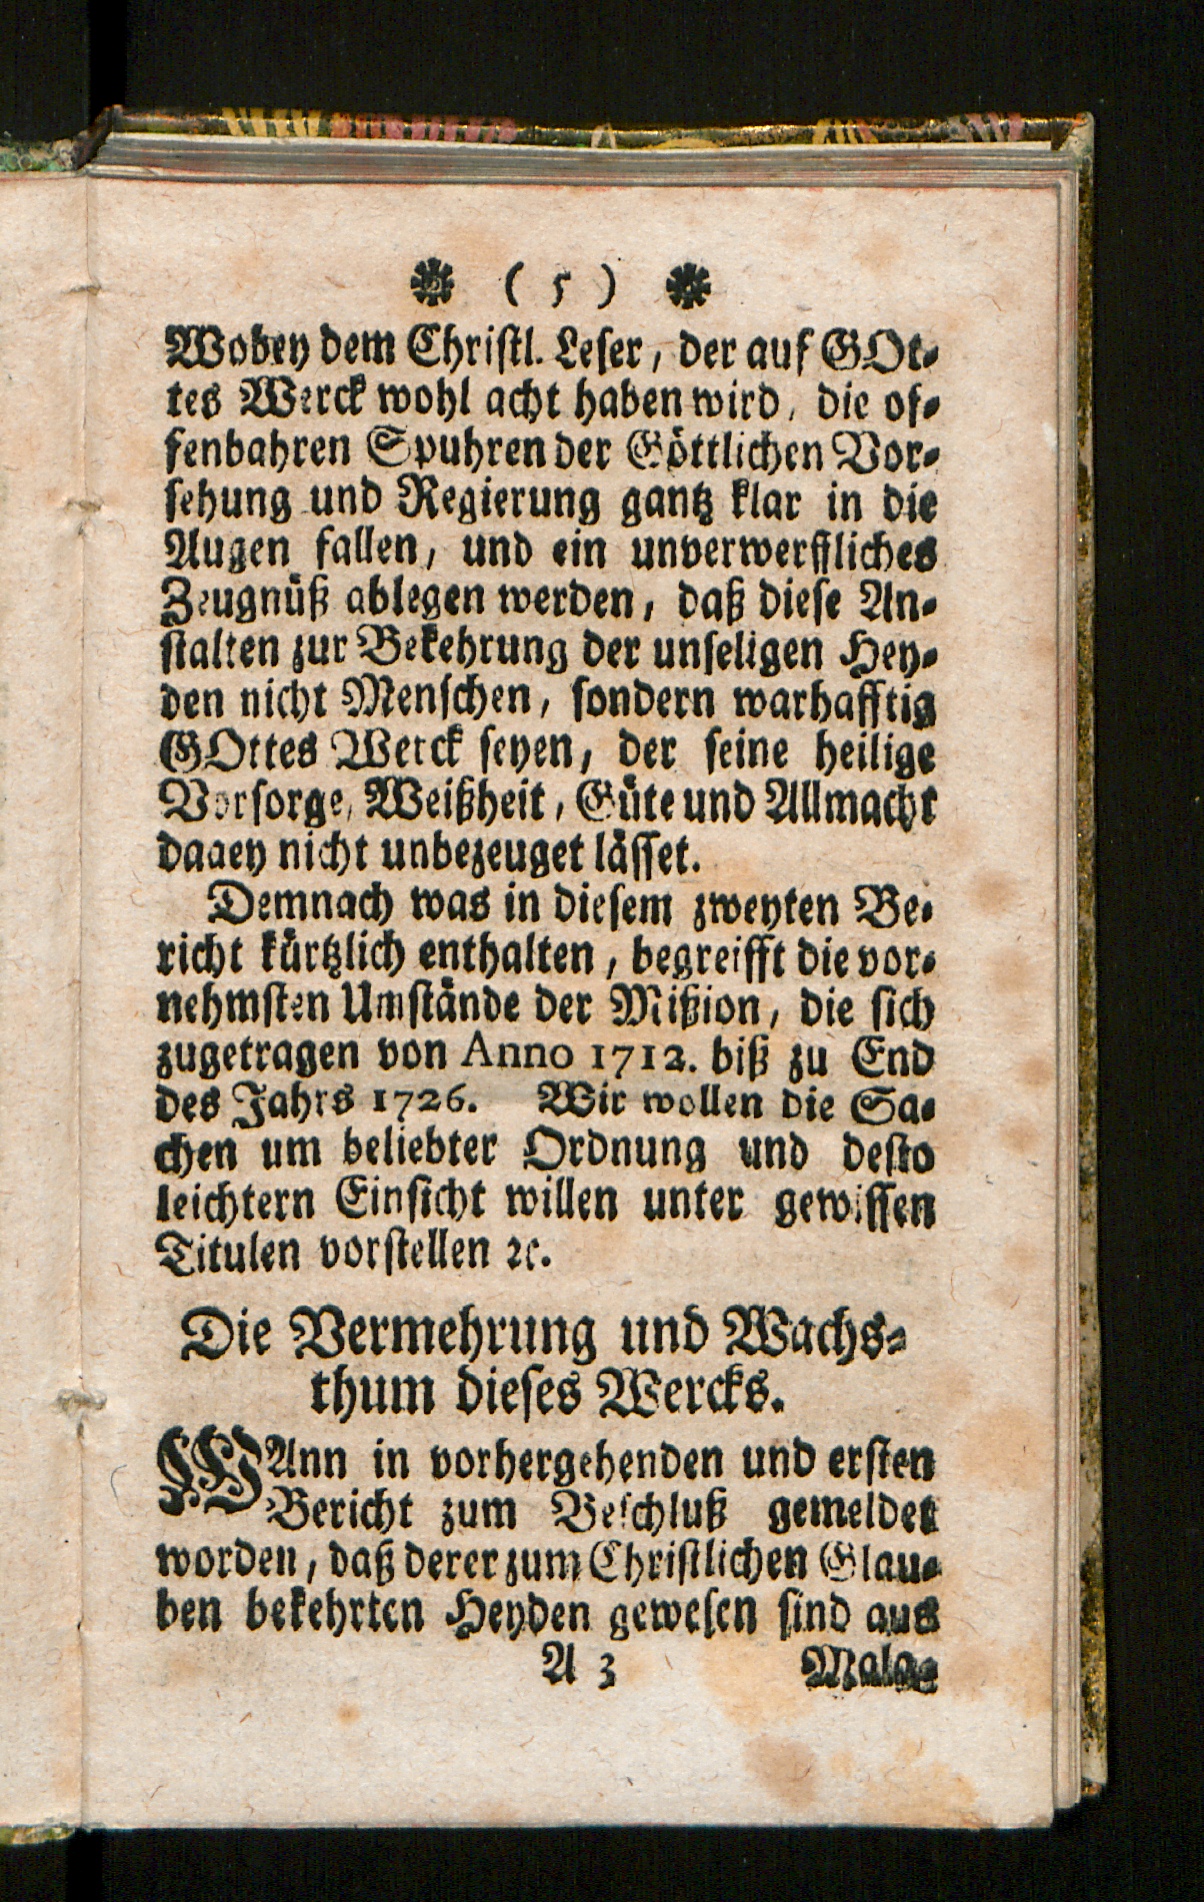 ❋ ( 5 ) ❋
Wobey dem Christl. Leser, der auf GOt-
tes Werck wohl acht haben wird, die of-
fenbahren Spuhren der Göttlichen Vor-
sehung und Regierung gantz klar in die
Augen fallen, und ein unverwerffliches
Zeugnüß ablegen werden, daß diese An-
stalten zur Bekehrung der unseligen Hey-
den nicht Menschen, sondern warhafftig
GOttes Werck seyen, der seine heilige
Vorsorge, Weißheit, Güte und Allmacht
daaey nicht unbezeuget lässet.
Demnach was in diesem zweyten Be-
richt kürtzlich enthalten, begreifft die vor-
nehmsten Umstände der Mißion, die sich
zugetragen von Anno 1712. biß zu End
des Jahrs 1726. Wir wollen die Sa-
chen um beliebter Ordnung und desto
leichtern Einsicht willen unter gewissen
Titulen vorstellen ꝛc.
Die Vermehrung und Wachs-
thum dieses Wercks.
WAnn in vorhergehenden und ersten
Bericht zum Beschluß gemeldet
worden, daß derer zum Christlichen Glau-
ben bekehrten Heyden gewesen sind aus
A 3 Mala-